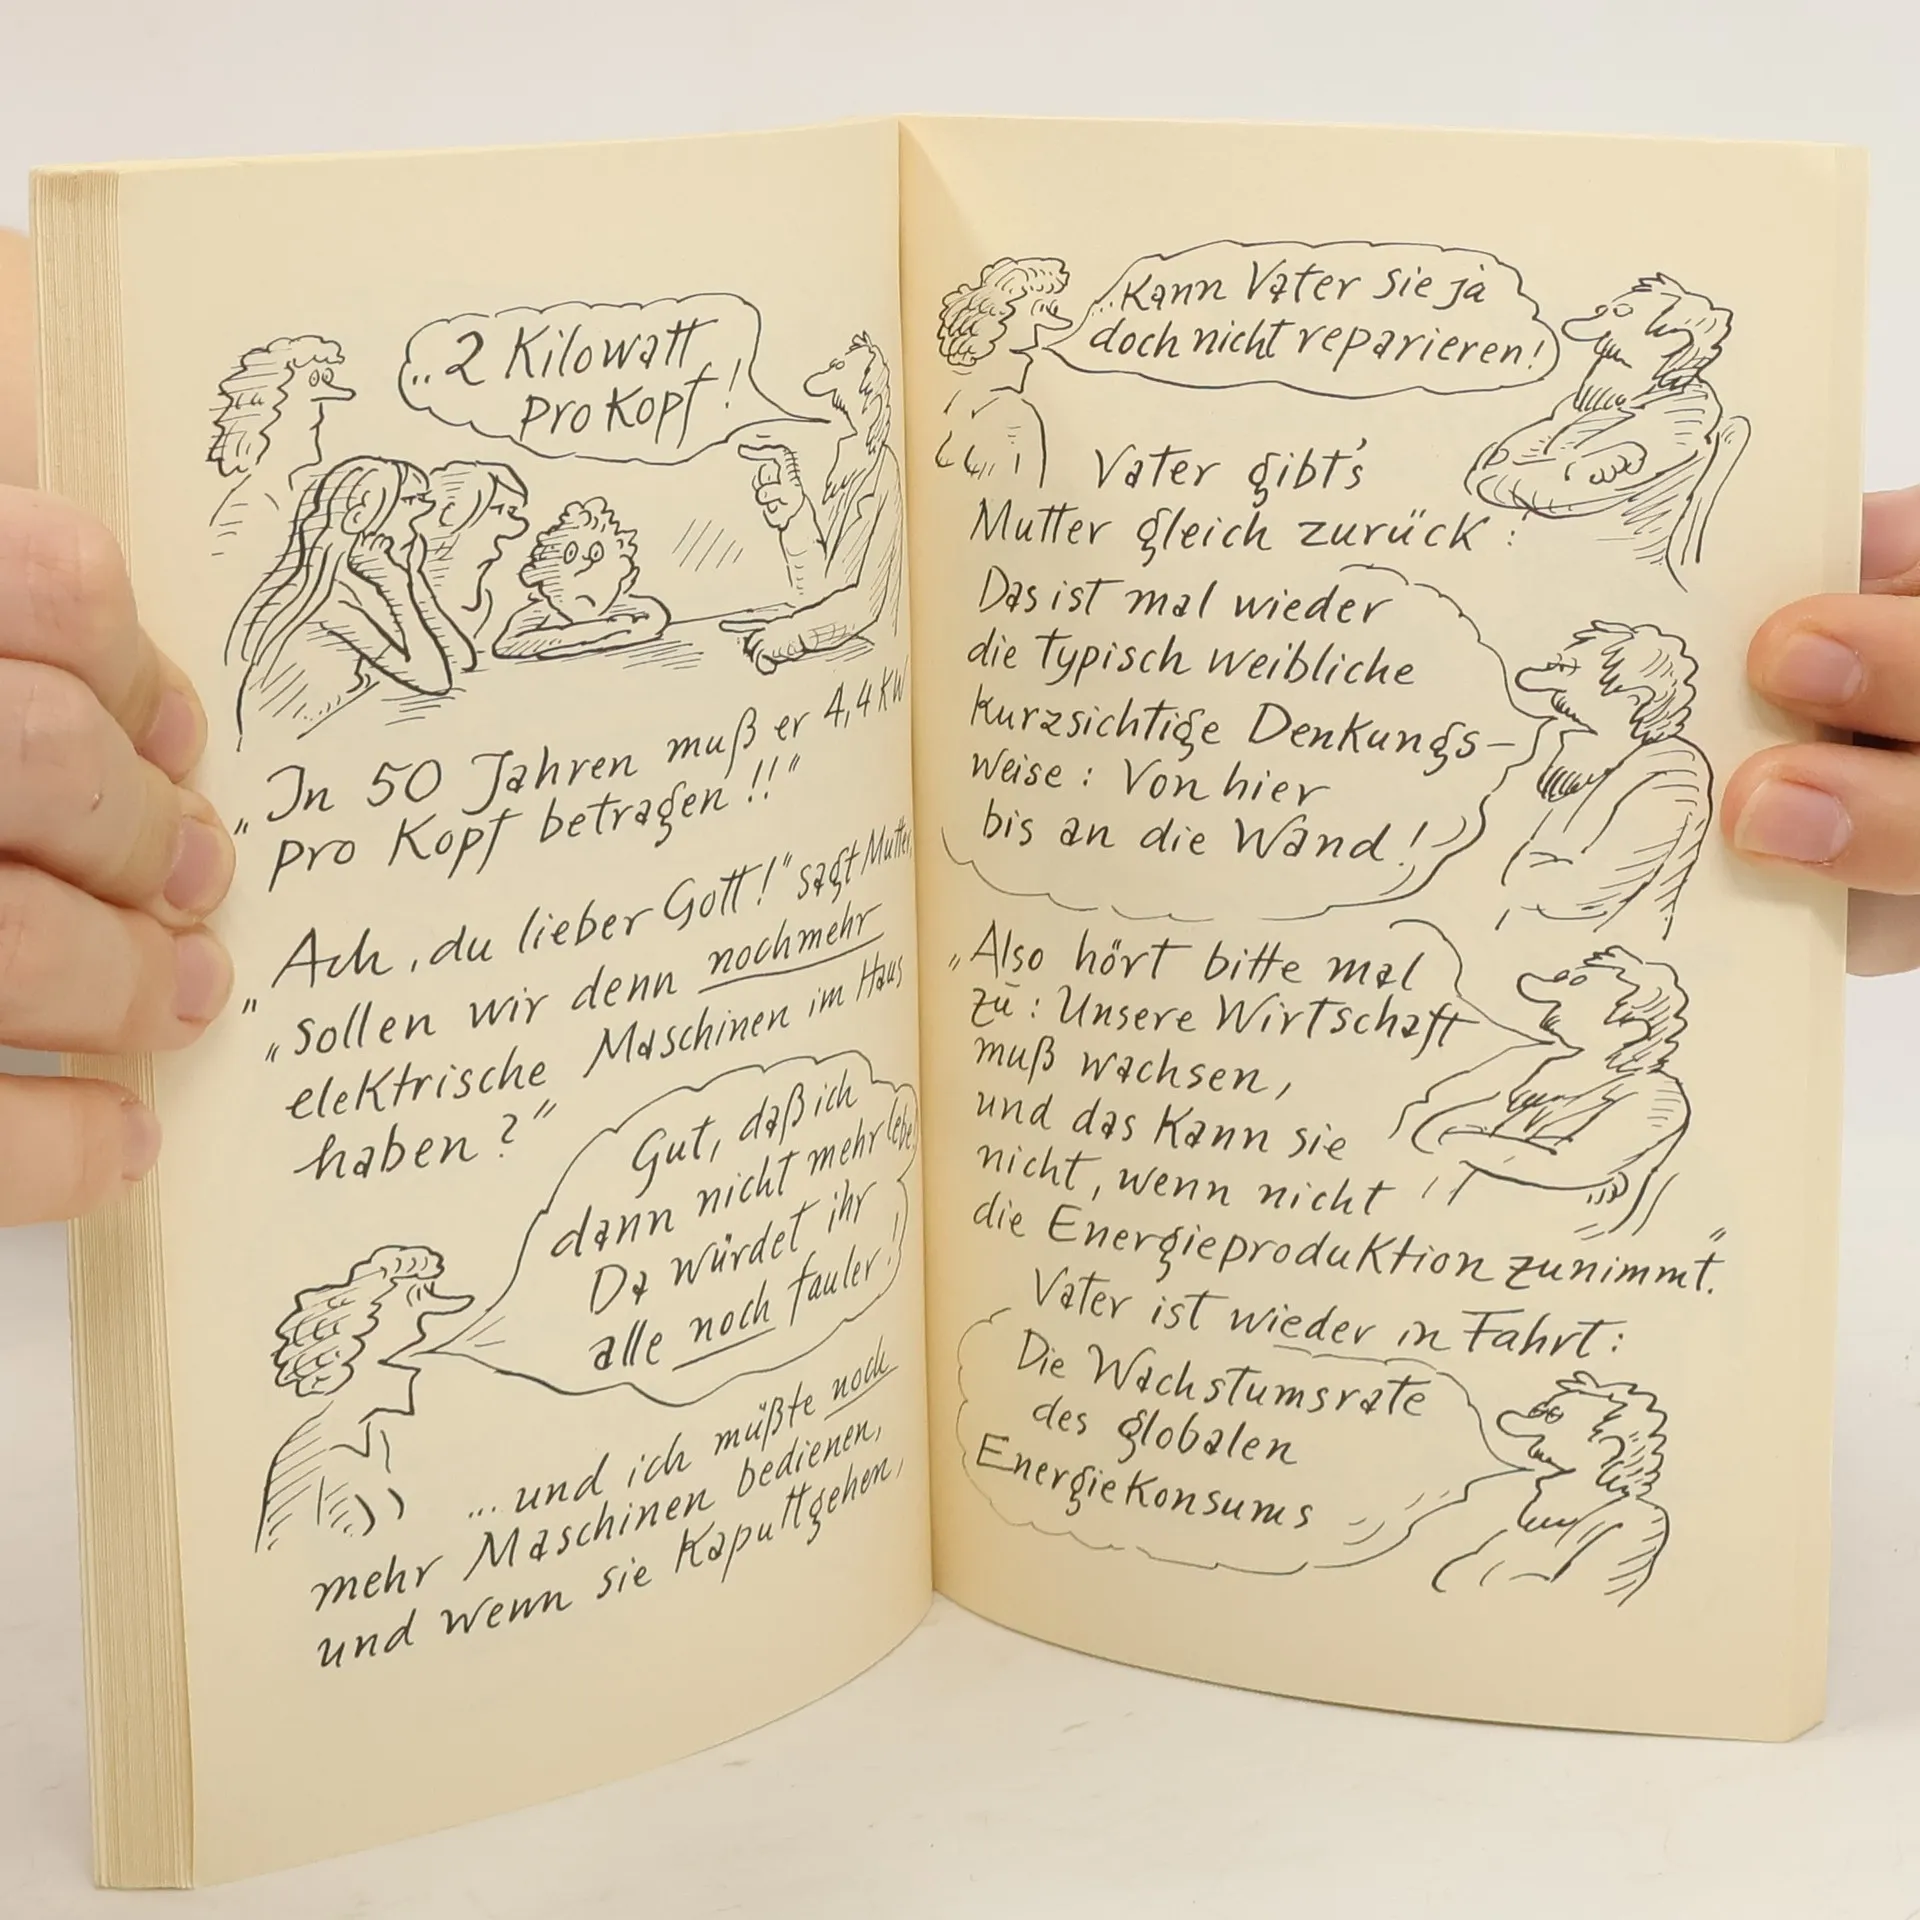 ..2 Kilowatt
pro Kopf!
„In 50 Jahren muß er 4,4 KW
pro Kopf betragen!!"
„Ach, du lieber Gott!" sagt Mutter,
„sollen wir denn noch mehr
elektrische Maschinen im Haus
haben?"
Gut, daß ich
dann nicht mehr lebe!
Da würdet ihr
alle noch fauler!
... und ich müßte noch
mehr Maschinen bedienen,
und wenn sie kaputtgehen,
..kann Vater sie ja
doch nicht reparieren!
Vater gibt's
Mutter gleich zurück:
Das ist mal wieder
die typisch weibliche
kurzsichtige Denkungs-
weise: Von hier
bis an die Wand!
„Also hört bitte mal
zu: Unsere Wirtschaft
muß wachsen,
und das kann sie
nicht, wenn nicht
die Energieproduktion zunimmt."
Vater ist wieder in Fahrt:
Die Wachstumsrate
des globalen
Energiekonsums